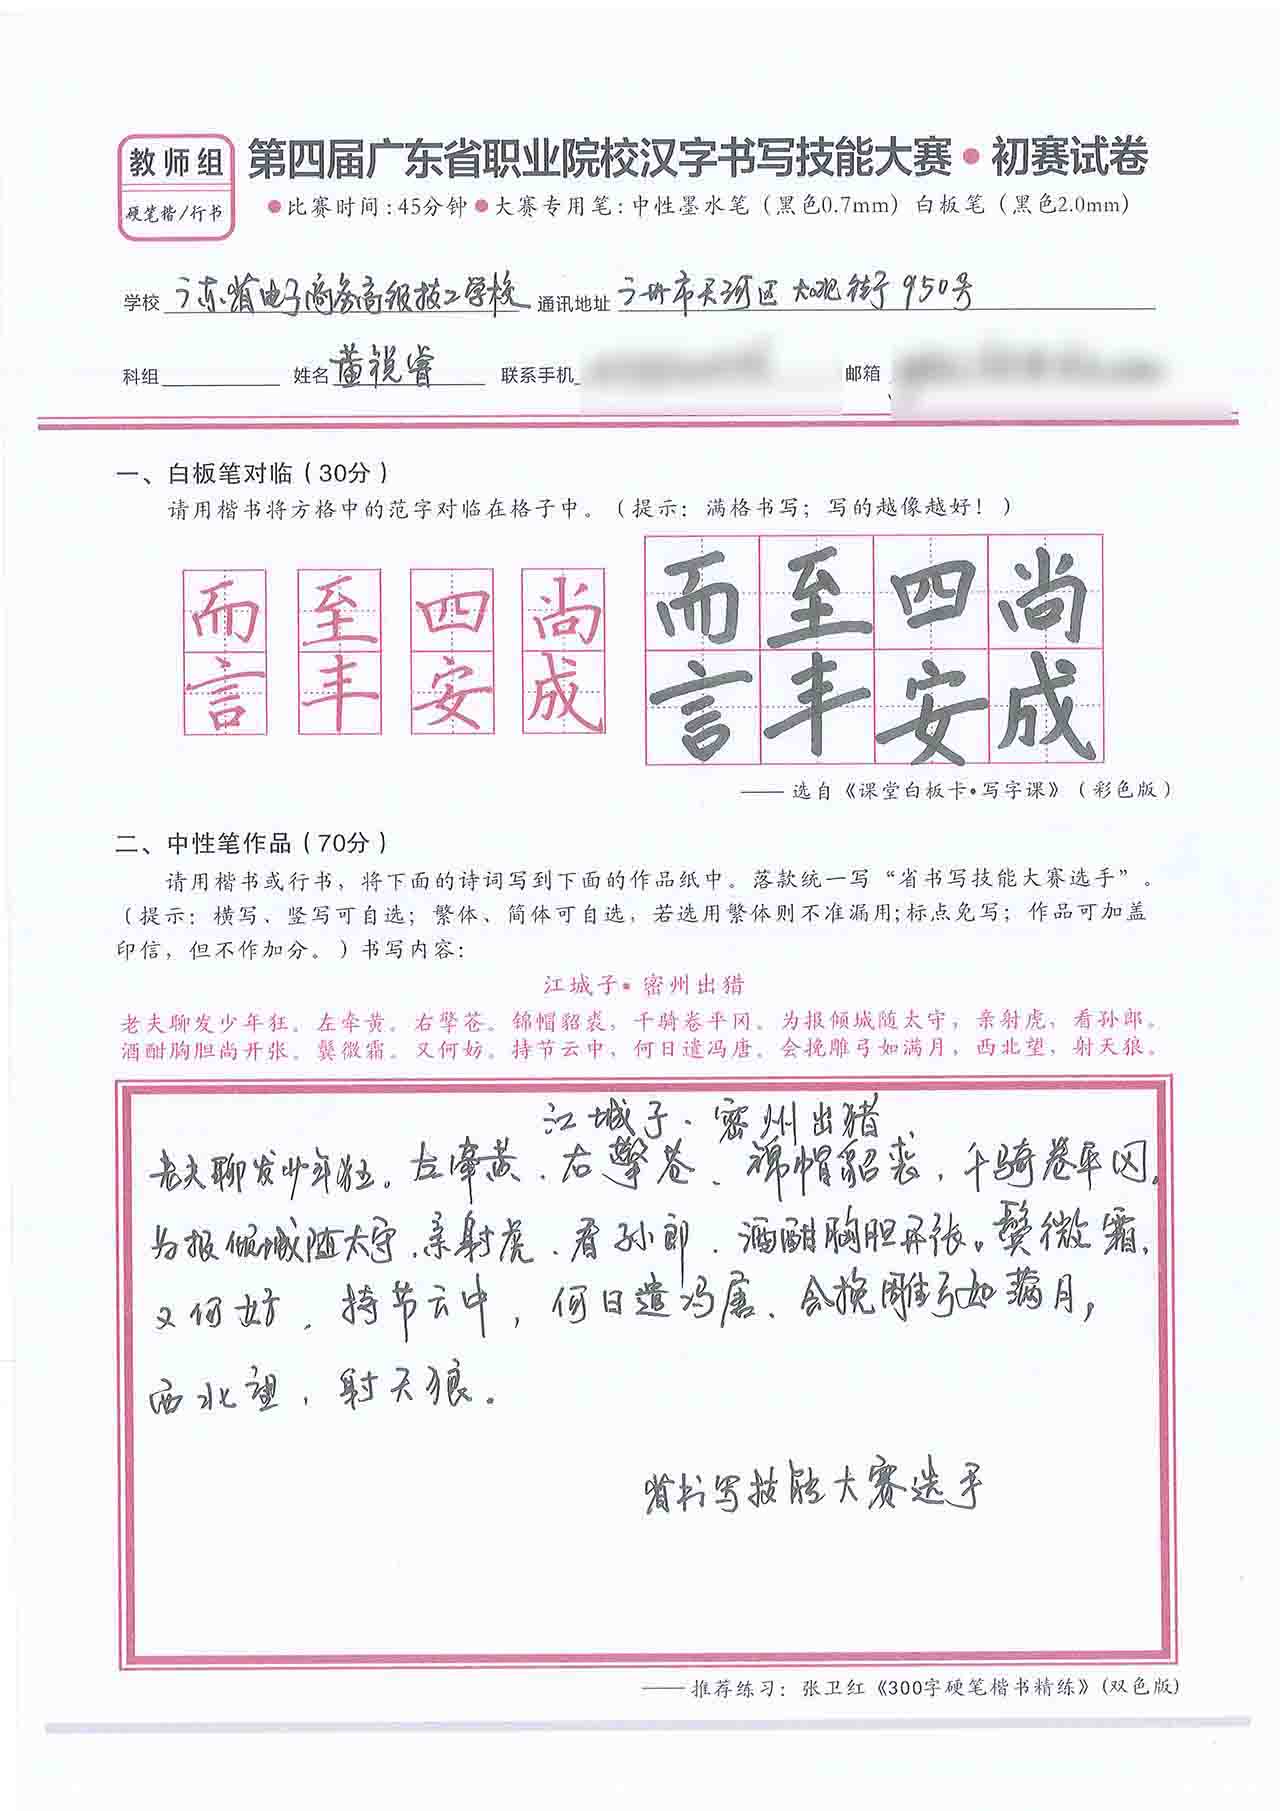 教师组
硬笔楷/行书
第四届广东省职业院校汉字书写技能大赛•初赛试卷
●比赛时间:45分钟●大赛专用笔:中性墨水笔(黑色0.7mm) 白板笔(黑色2.0mm)
学校 广东省电子商务高级技工学校 通讯地址 广州市天河区大观街950号
科组 姓名 董锐睿 联系手机 邮箱
一、白板笔对临(30分)
请用楷书将方格中的范字对临在格子中。(提示: 满格书写; 写的越像越好! )
而 至 四 尚 而 至 四 尚
言 丰 安 成 言 丰 安 成
——选自《课堂白板卡•写字课》(彩色版)
二、中性笔作品(70分)
请用楷书或行书,将下面的诗词写到下面的作品纸中。落款统一写“省书写技能大赛选手”。
(提示: 横写、竖写可自选; 繁体、简体可自选, 若选用繁体则不准漏用;标点免写; 作品可加盖
印信, 但不作加分。)书写内容:
江城子•密州出猎
老夫聊发少年狂。左牵黄。右擎苍。锦帽貂裘, 千骑卷平冈。为报倾城随太守, 亲射虎, 看孙郎。
酒酣胸胆尚开张。鬓微霜。又何妨。持节云中, 何日遣冯唐。会挽雕弓如满月, 西北望, 射天狼。
江城子·密州出猎
老夫聊发少年狂。左牵黄、右擎苍、锦帽貂裘,千骑卷平冈。
为报倾城随太守、亲射虎、看孙郎、酒酣胸胆开张。鬓微霜、
又何妨、持节云中,何日遣冯唐、会挽雕弓如满月,
西北望,射天狼。
省书写技能大赛选手
——推荐练习: 张卫红《300字硬笔楷书精练》(双色版)